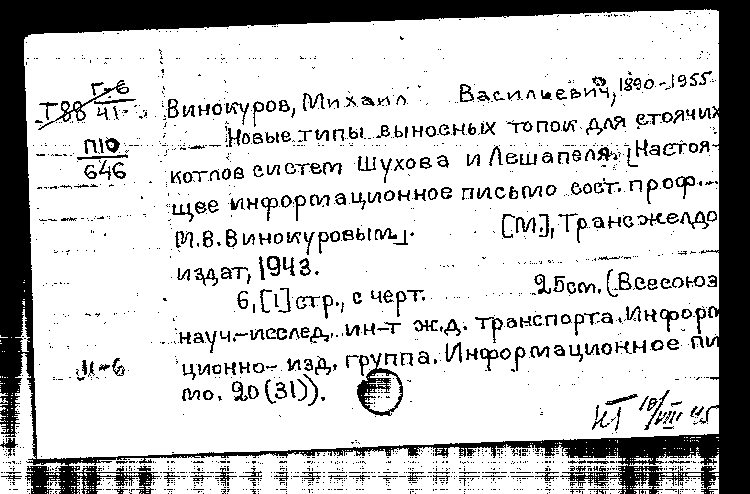 Г-6
Т88 41
П10
646
Винокуров, Михаил Васильевич, 1890-1955
Новые типы выносных топок для стоячих
котлов систем Шухова и Лешапеля. [Настоя-
щее информационное письмо сост. проф...
М.В.Винокуровым]. [М.], Трансжелдо
издат, 1943.
6,[1]стр., с черт. 25см. (Всесоюз
науч.-исслед. ин-т ж.д. транспорта. Информ
ционно- изд. группа. Информационное пи
мо. 20(31)).
М-6
10/VIII 45